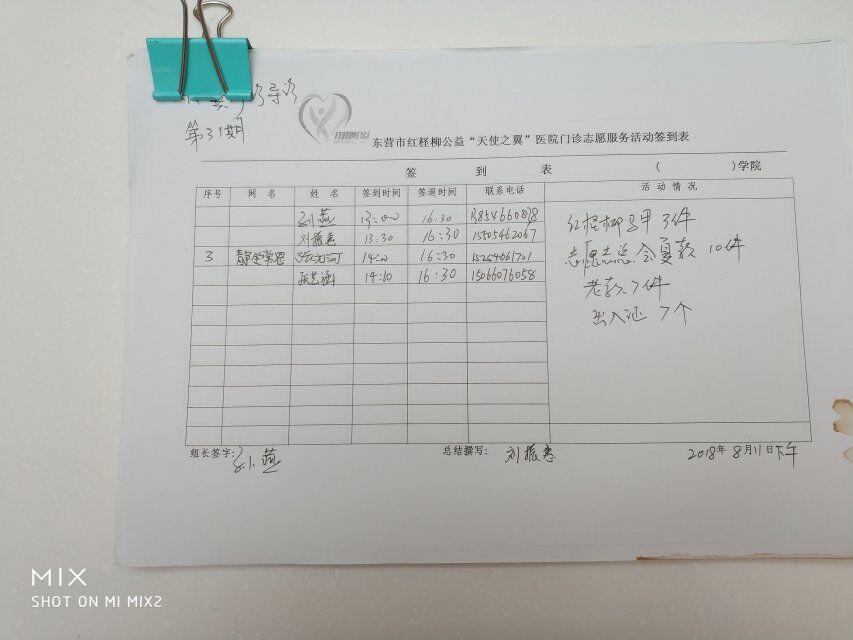 第31期
东营市红柽柳公益“天使之翼”医院门诊志愿服务活动签到表
签 到 表 ( )学院
序号 网 名 姓 名 签到时间 签退时间 联系电话 活 动 情 况
刘燕 13:00 16:30
刘振惠 13:30 16:30 15505462067
3 14:00 16:30 15254661701
14:10 16:30 15066076058
红柽柳马甲 3件
志愿者总会夏款 10件
老款7件
出入证 7个
组长签字: 刘燕 总结撰写: 刘振惠 2018年8月11日下午
MIX
SHOT ON MI MIX2